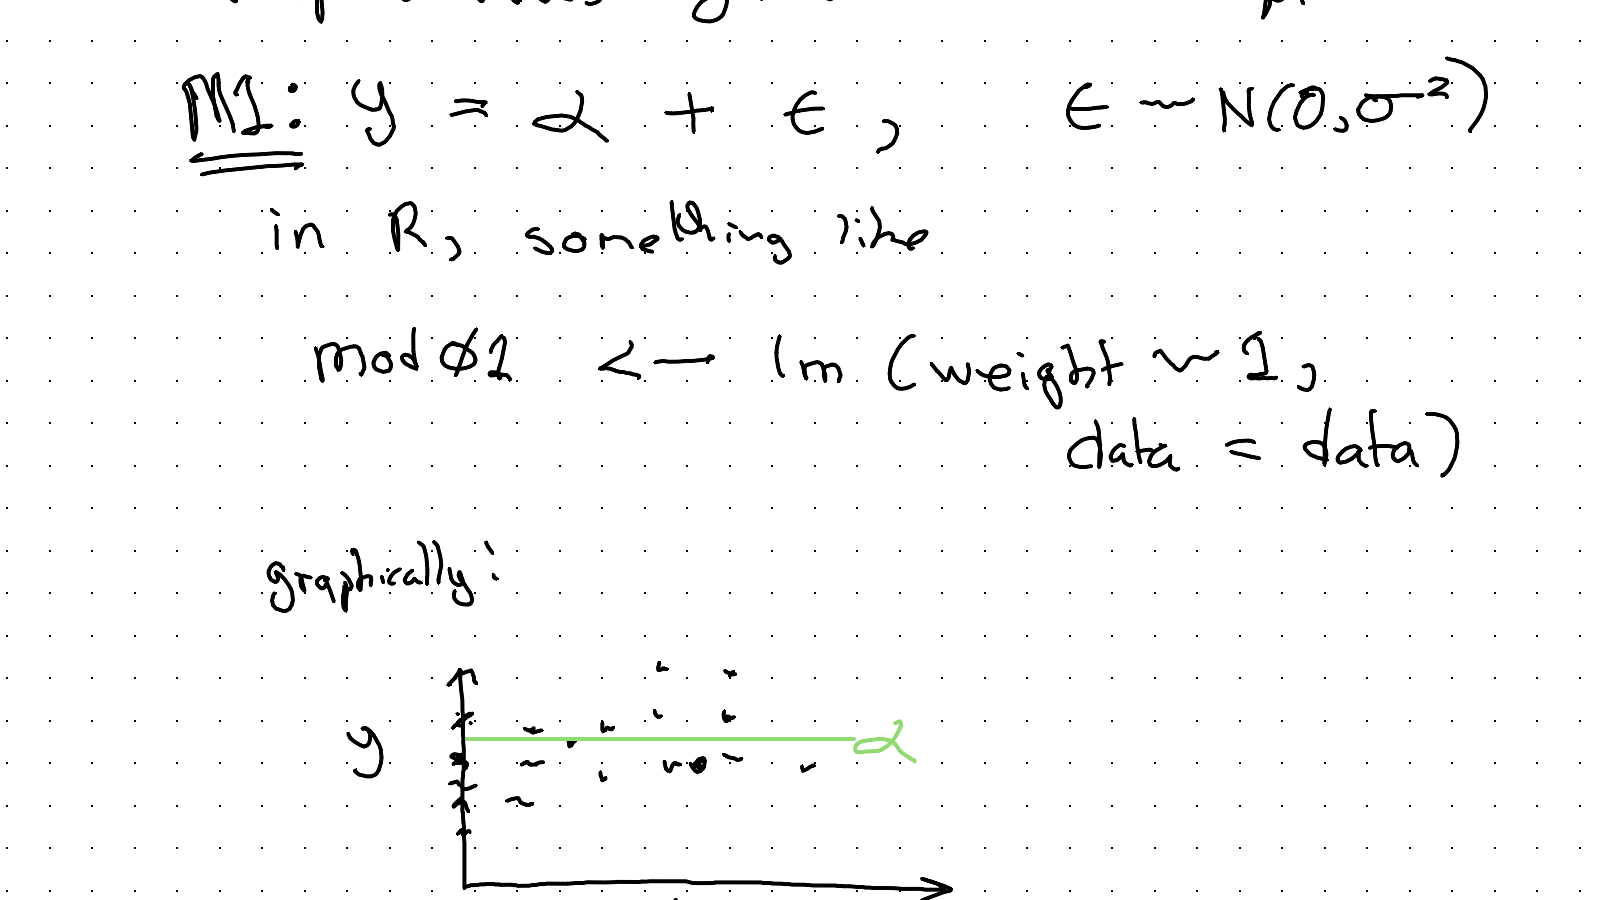 M1: y = α + ϵ, ϵ ~ N(0, σ²)
in R, something like
mod01 <- lm (weight ~ 1,
data = data)
graphically:
y α